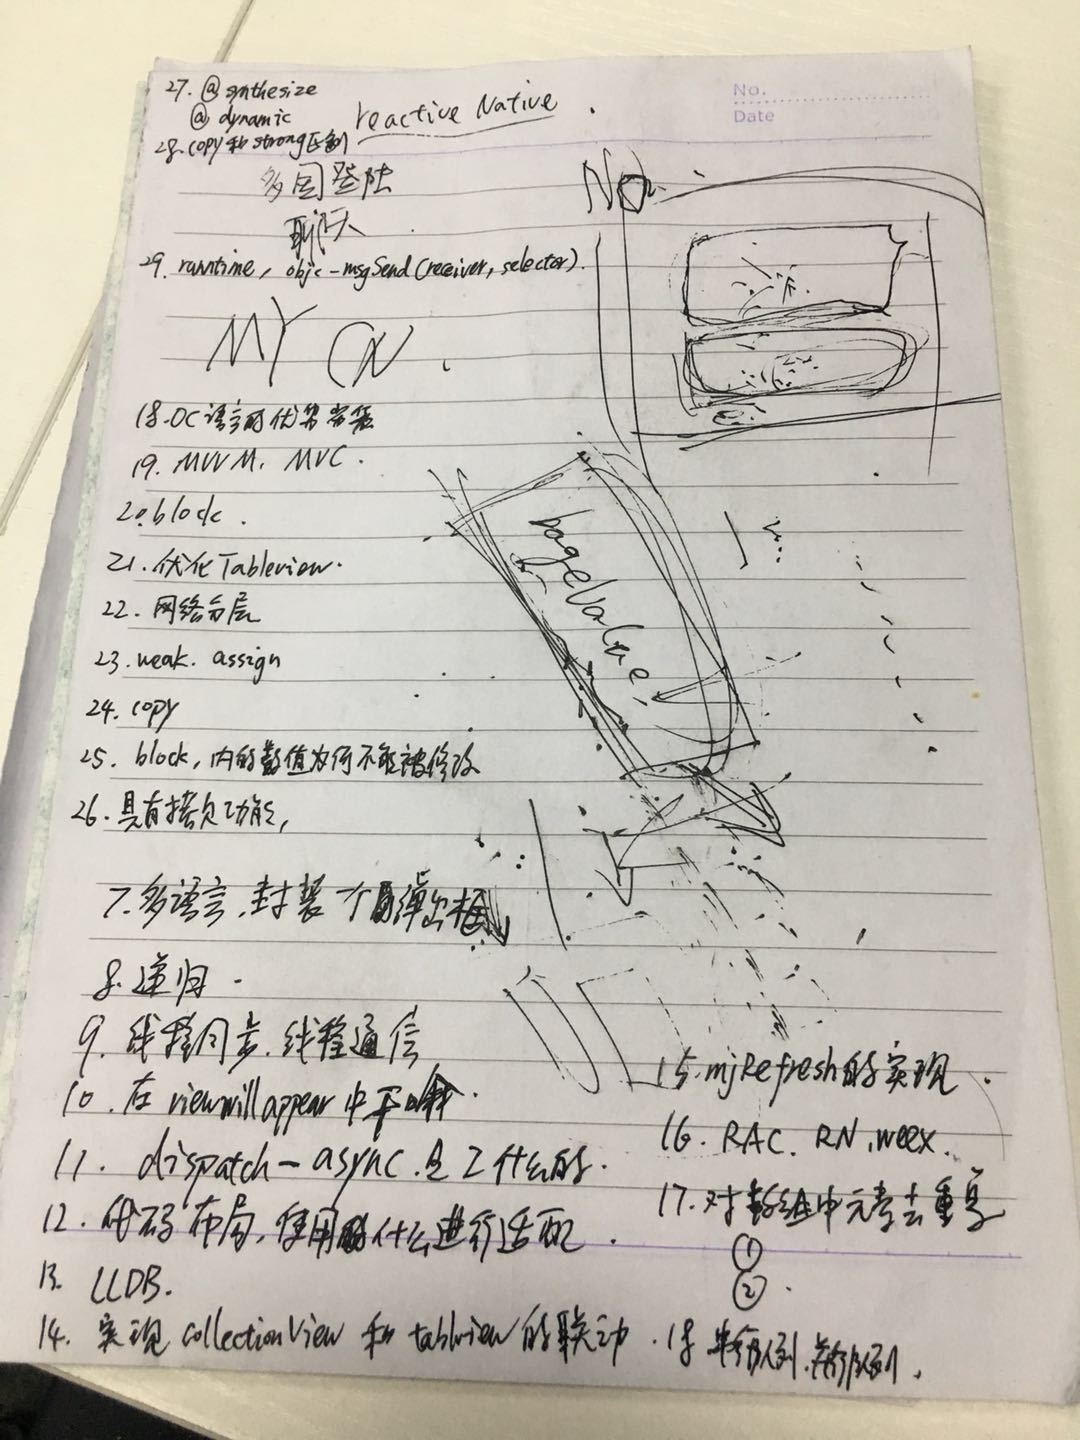 No.
Date
27. @synthesize
@dynamic
reactive Native.
28. copy和strong区别
多国登陆
No.
29. runtime, objc-msgSend(receiver, selector).
MY
18. OC语言的优势
19. MVVM. MVC.
20. block.
21. 优化Tableview.
bageValue
22. 网络分层
23. weak. assign
24. copy
25. block, 内的数值为何不能被修改
26. 具有拷贝功能,
7. 多语言, 封装一个弹出框
8. 递归.
9. 线程同步. 线程通信
10. 在viewwillappear中
11. dispatch-async. 是 什么的.
12. 代码布局, 使用 什么进行适配.
13. LLDB.
14. 实现collectionView和tablview的联动.
15. mjRefresh的实现.
16. RAC. RN. weex.
17. 对数组中元素去重复
①
②.
18 串行队列. 并行队列.